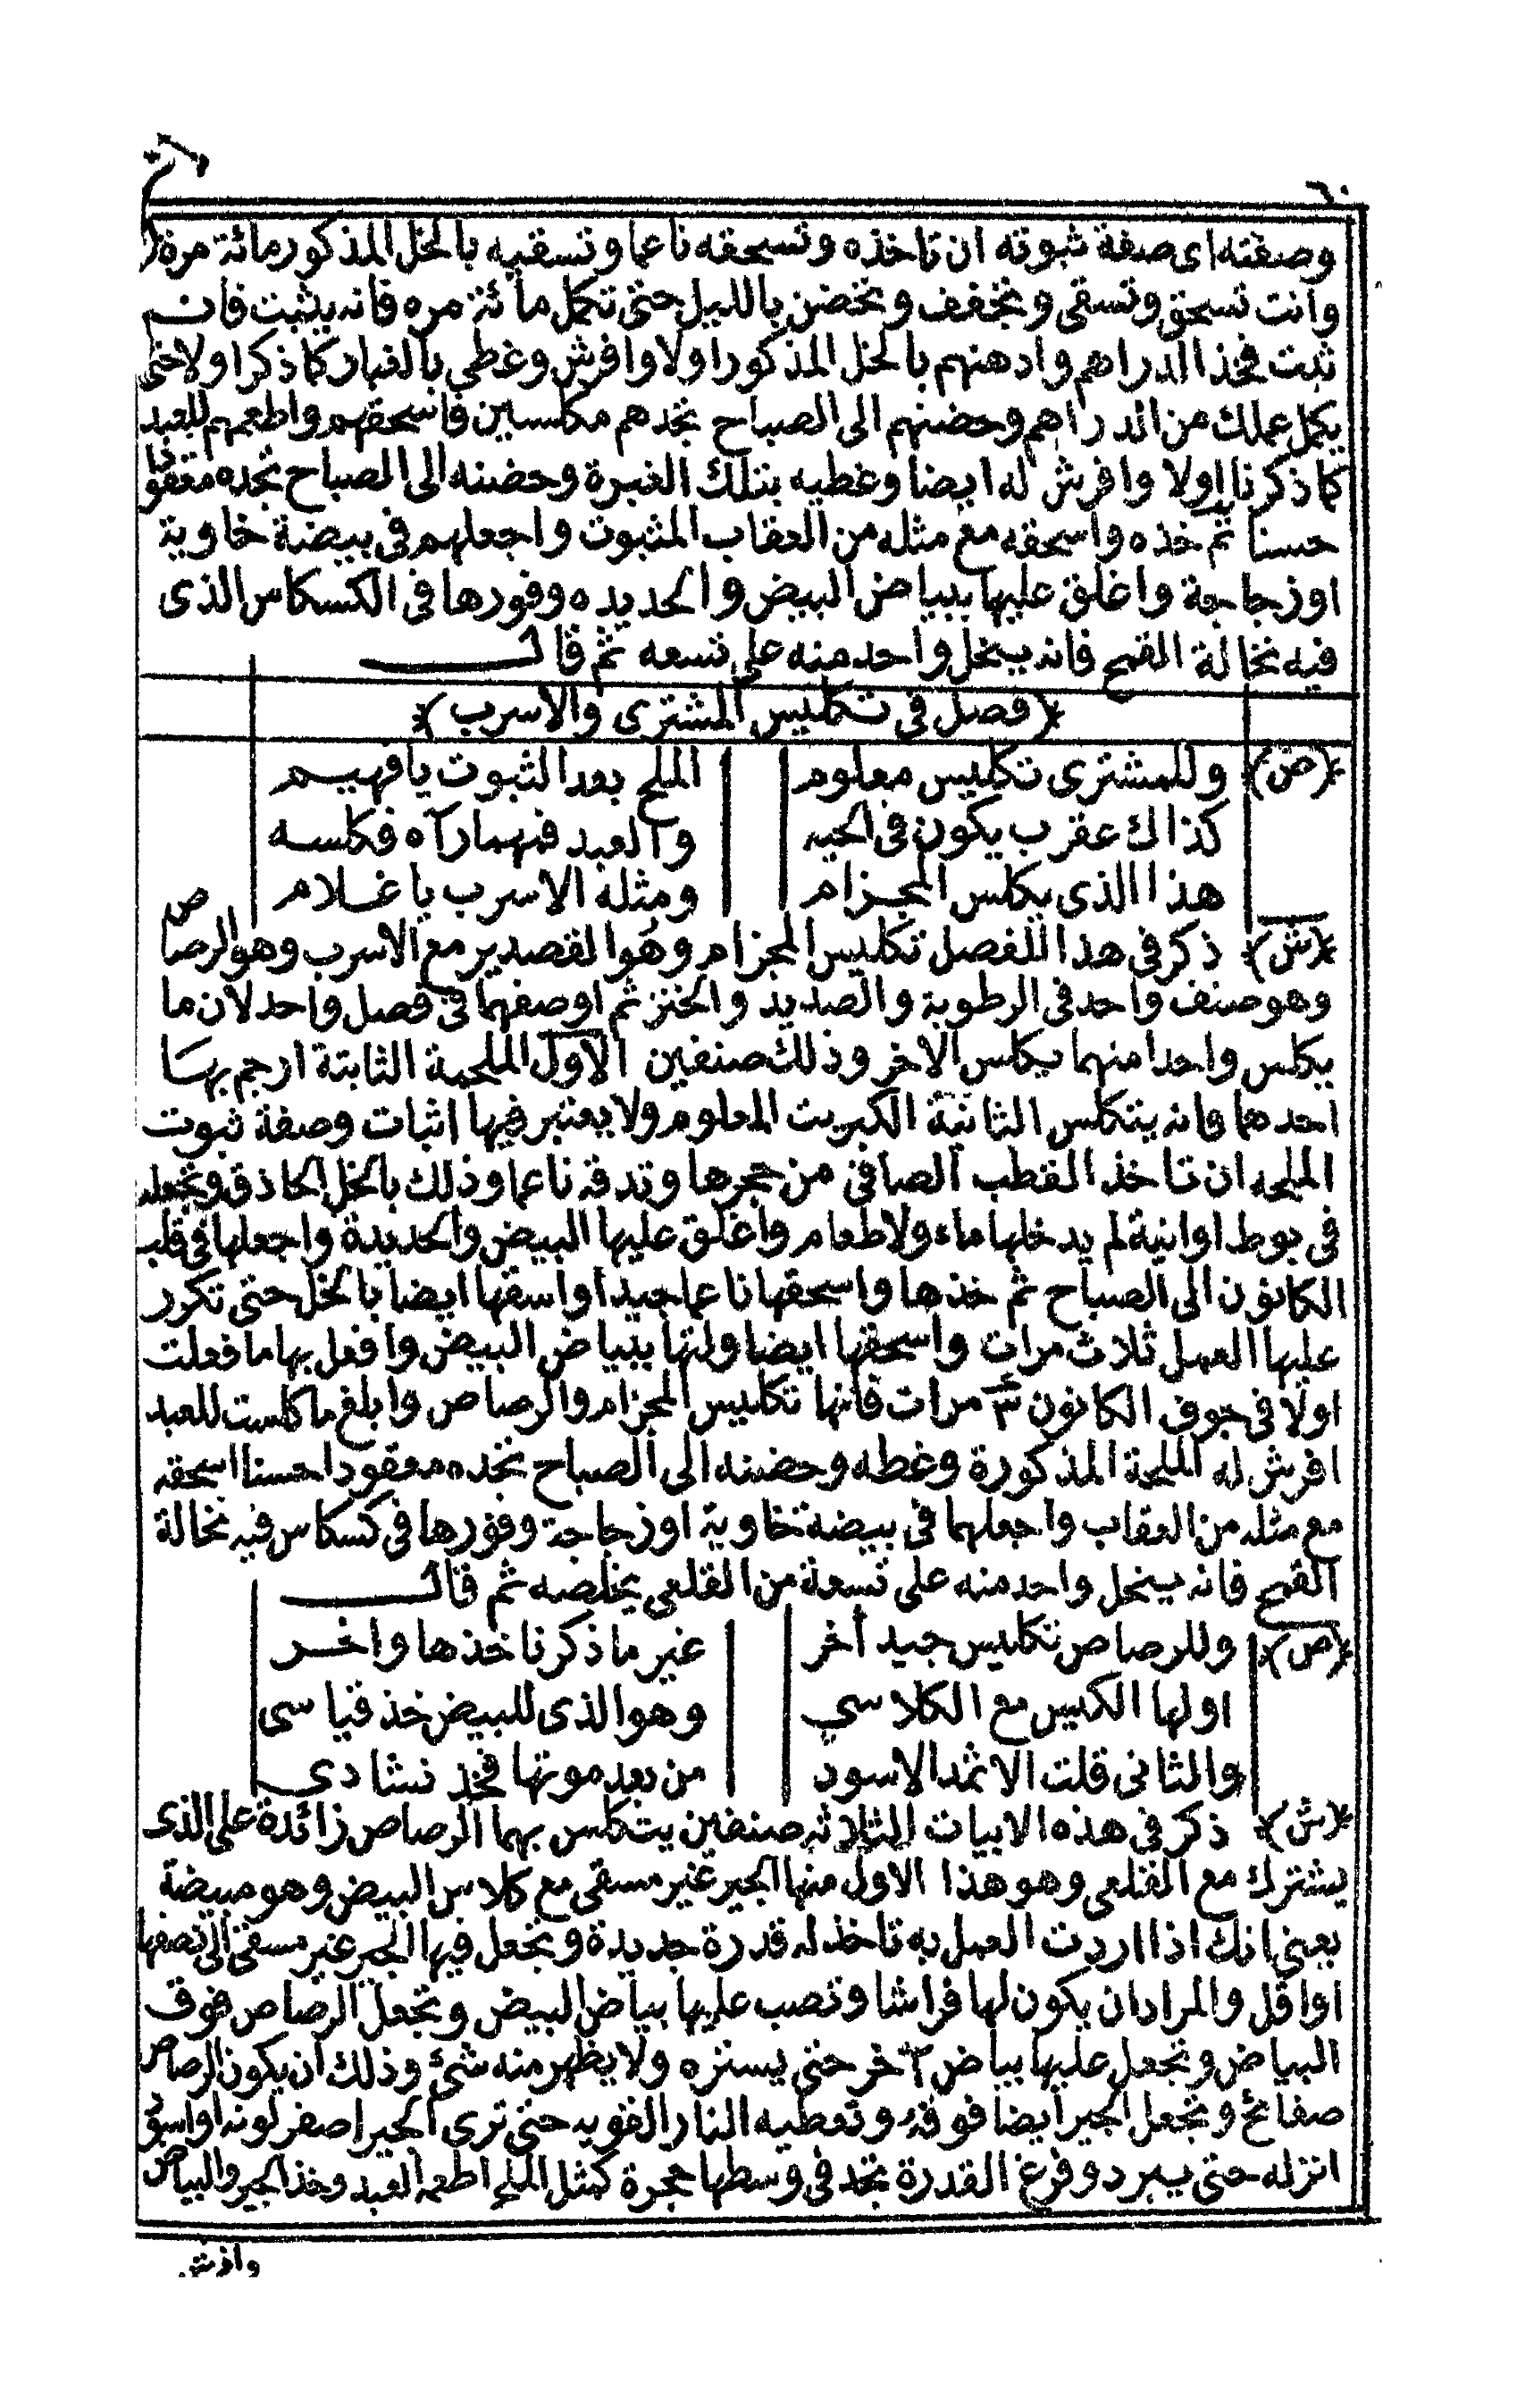 ٦٠
وصفته اى صفة ثبوته ان تاخذه وتسحقه ناعما وتسقيه بالخل المذكور مائة مرة
وانت تسحق وتسقى وتجفف وتحضن بالليل حتى تكمل مائة مره فانه يثبت فان
ثبت فخذ الدراهم وادهنهم بالخل المذكور اولا وافرش وغطى بالغبار كما ذكرا ولا حتى
يكمل عملك من الدراهم وحضنهم الى الصباح تجدهم مكلسين فاسحقهم واطعمهم للعبد
كما ذكرنا اولا وافرش له ايضا وغطيه بتلك الغبرة وحضنه الى الصباح تجده معقودا
حسنا ثم خذه واسحقه مع مثله من العقاب المثبوت واجعلهم فى بيضة خاوية
اوزجاجة واغلق عليها ببياض البيض والحديده وفورها فى الكسكاس الذى
فيه نخالة القمح فانه ينحل واحد منه على تسعه ثم قال
﴿فصل فى تكليس المشترى والاسرب﴾
﴿ص﴾ وللمشترى تكليس معلوم الملح بعد الثبوت يا فهيم
كذاك عقرب يكون فى الحيه والعبد فمهما رآه فكلسه
هذا الذى يكلس المجزام ومثله الاسرب يا غلام
﴿ش﴾ ذكر فى هذا الفصل تكليس المجزام وهو القصدير مع الاسرب وهو الرصاص
وهو صنف واحد فى الرطوبة والصديد والخنز ثم اوصفهما فى فصل واحد لان ما
يكلس واحدا منهما يكلس الاخر وذلك صنفين الاول الملحية الثابتة ارجم بها
احدهما فانه يتكلس الثانية الكبريت المعلوم ولا يعتبر فيها اثبات وصفة ثبوت
الملحه ان تاخذ القطب الصافى من حجرها وتدقه ناعما وذلك بالخل الحاذق وتجعله
فى بوط اوانية لم يدخلها ماء ولا طعام واغلق عليها البيض والحديدة واجعلها فى قلب
الكانون الى الصباح ثم خذها واسحقها ناعما جيدا واسقها ايضا بالخل حتى تكرر
عليها العمل ثلاث مرات واسحقها ايضا ولتها ببياض البيض وافعل بها ما فعلت
اولا فى جوف الكانون ٣ مرات فانها تكليس المجزام والرصاص وابلغ ما كلست للعبد
افرش له الملحة المذكورة وغطه وحضنه الى الصباح تجده معقودا حسنا اسحقه
مع مثله من العقاب واجعلهما فى بيضة خاوية اوزجاجة وفورها فى كسكاس فيه نخالة
القمح فانه ينحل واحد منه على تسعة من القلعى يخلصه ثم قال
﴿ص﴾ وللرصاص تكليس جيد أخر غير ما ذكرنا خذها واخر
اولها الكيس مع الكلاسي وهو الذى للبيض خذ قياسى
والثانى قلت الاثمد الاسود من بعد موتها فخذ نشادى
﴿ش﴾ ذكر فى هذه الابيات الثلاثه صنفين يتكلس بهما الرصاص زائدة على الذى
يشترك مع القلعى وهو هذا الاول منها الجير غير مسقى مع كلاس البيض وهو مبيضة
يعنى انك اذا اردت العمل به تاخذ له قدرة جديدة وتجعل فيها الجير غير مسقى الى نصفها
اواقل والمراد ان يكون لها فراشا وتصب عليها بياض البيض وتجعل الرصاص فوق
البياض وتجعل عليها بياض آخر حتى يستره ولا يظهر منه شئ وذلك ان يكون الرصاص
صفائح وتجعل الجير ايضا فوقه وتعطيه النار القويه حتى ترى الجير اصفر لونه اواسود
انزله حتى يبرد وفرغ القدرة تجد فى وسطها حجرة كمثل الملح اطعمه العبد وخذ الجير والبياض